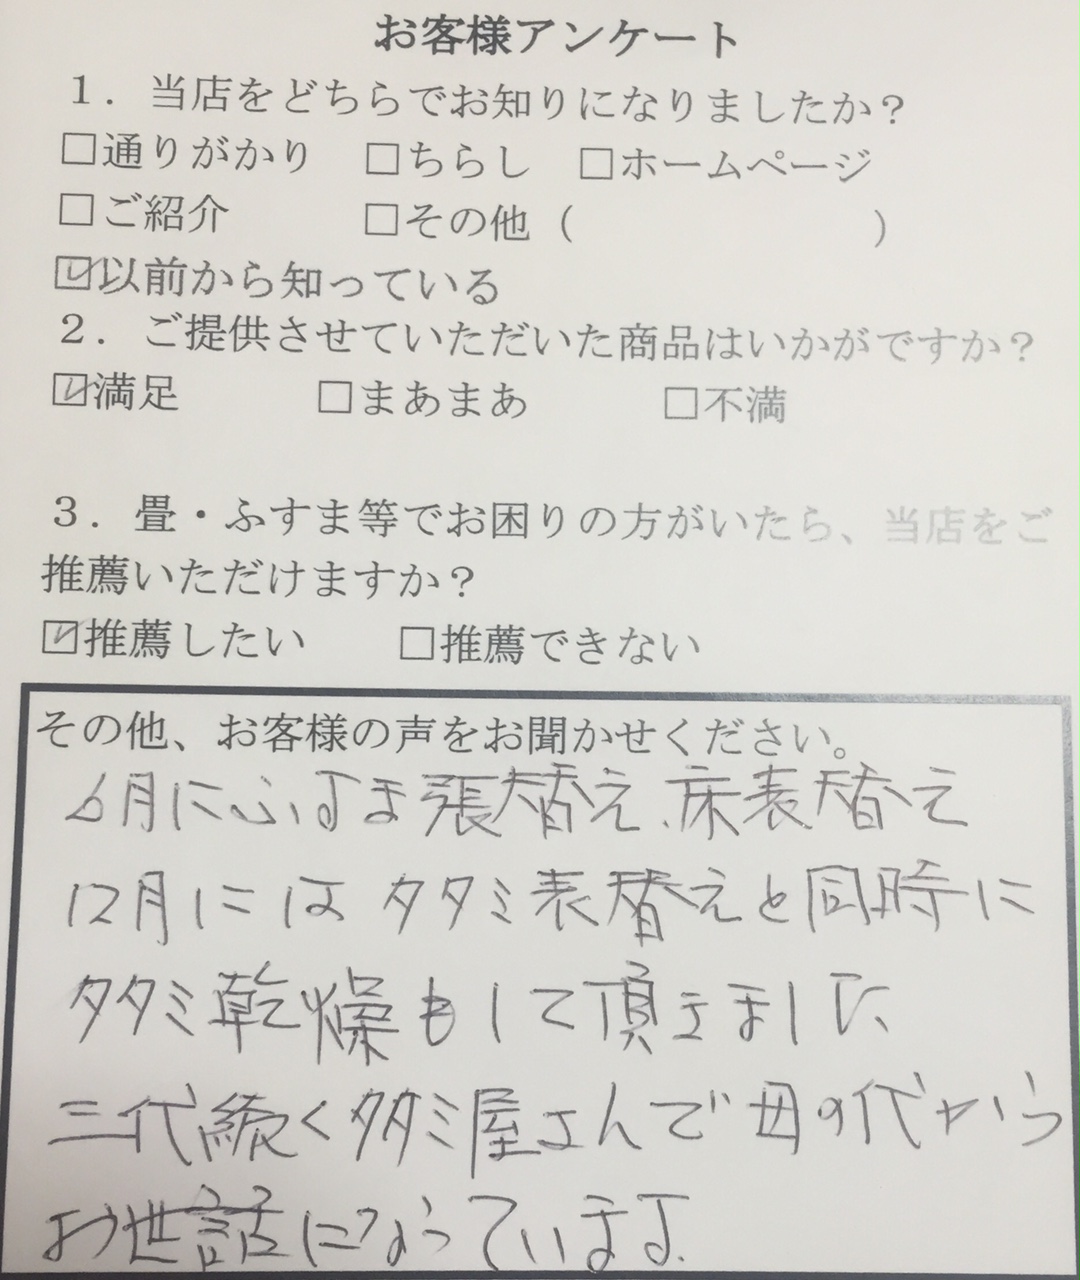 お客様アンケート
１．当店をどちらでお知りになりましたか？
□通りがかり　□ちらし　□ホームページ
□ご紹介　□その他（　　　　）
☑以前から知っている
２．ご提供させていただいた商品はいかがですか？
☑満足　□まあまあ　□不満
３．畳・ふすま等でお困りの方がいたら、当店をご
推薦いただけますか？
☑推薦したい　□推薦できない
その他、お客様の声をお聞かせください。
6月にふすま張替え、床表替え
12月にはタタミ表替えと同時に
タタミ乾燥もして頂きました
三代続くタタミ屋さんで母の代から
お世話になっています。